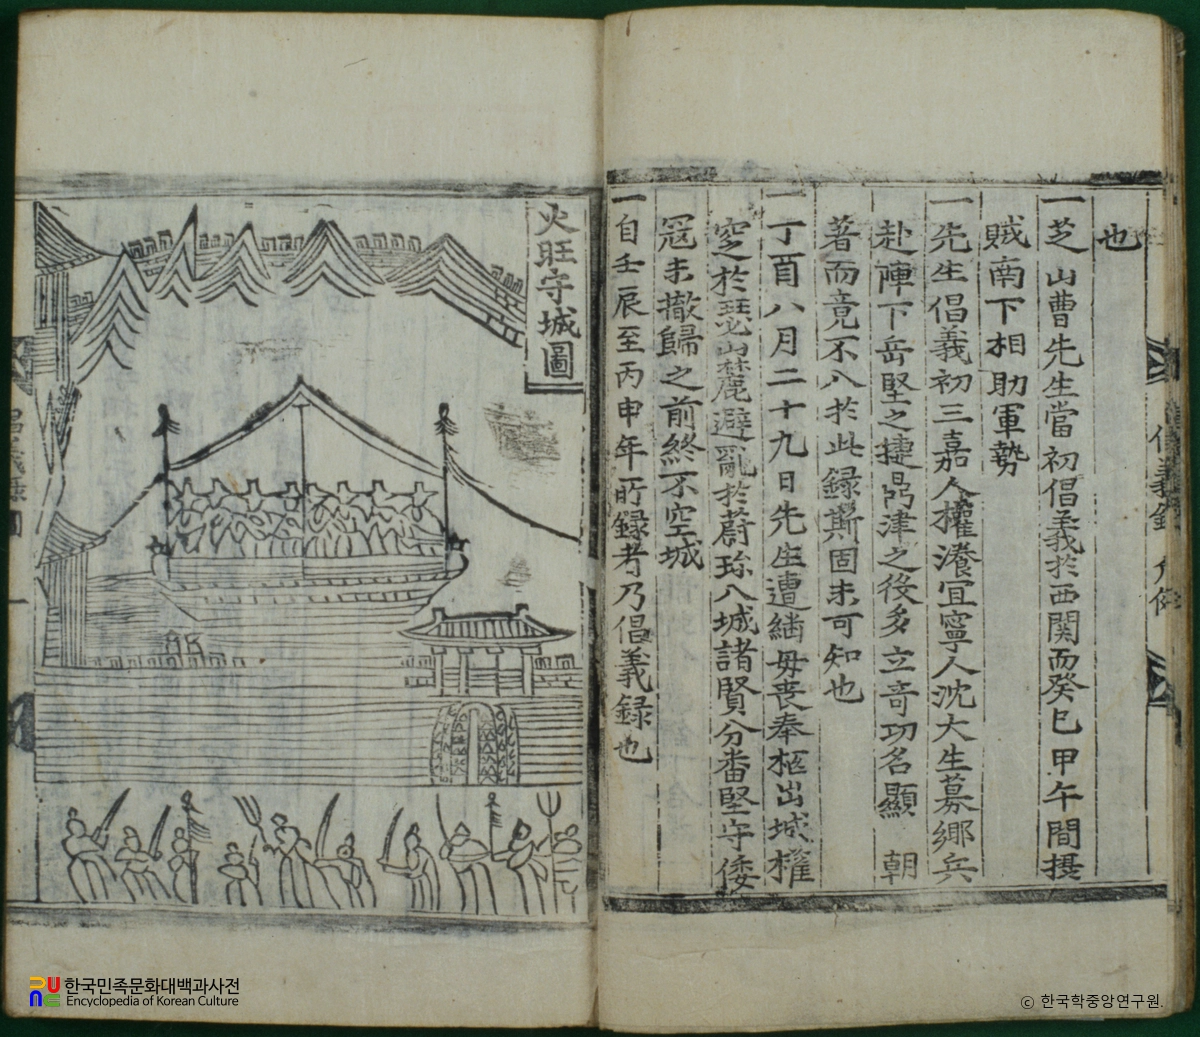 也
一芝山曹先生當初倡義於西関而癸巳甲午間摂
賊南下相助軍勢
一先生倡義初三嘉人權瀁宜寧人沈大生募鄉兵
赴陣下岳堅之捷鼎津之役多立奇功名顯 朝
著而竟不入於此録斯固未可知也
一丁酉八月二十九日先生遭繼母喪奉柩出城權
窆於琵瑟山麓避亂於蔚珍入城諸賢分番堅守倭
冦未撤歸之前終不空城
一自壬辰至丙申年所録者乃倡義録也
火旺守城圖
한국민족문화대백과사전
Encyclopedia of Korean Culture
© 한국학중앙연구원.